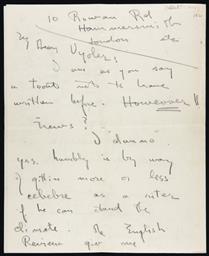 10 Rowan Rd.
Hammersmith
London
My dear Vyoler,
I am as you say
a toad not to have
written before. However!!
I dunno.
yes. humbly is by way
of gittin more or less
celebre as a riter
if he can stand the
climate. The English
Review give me